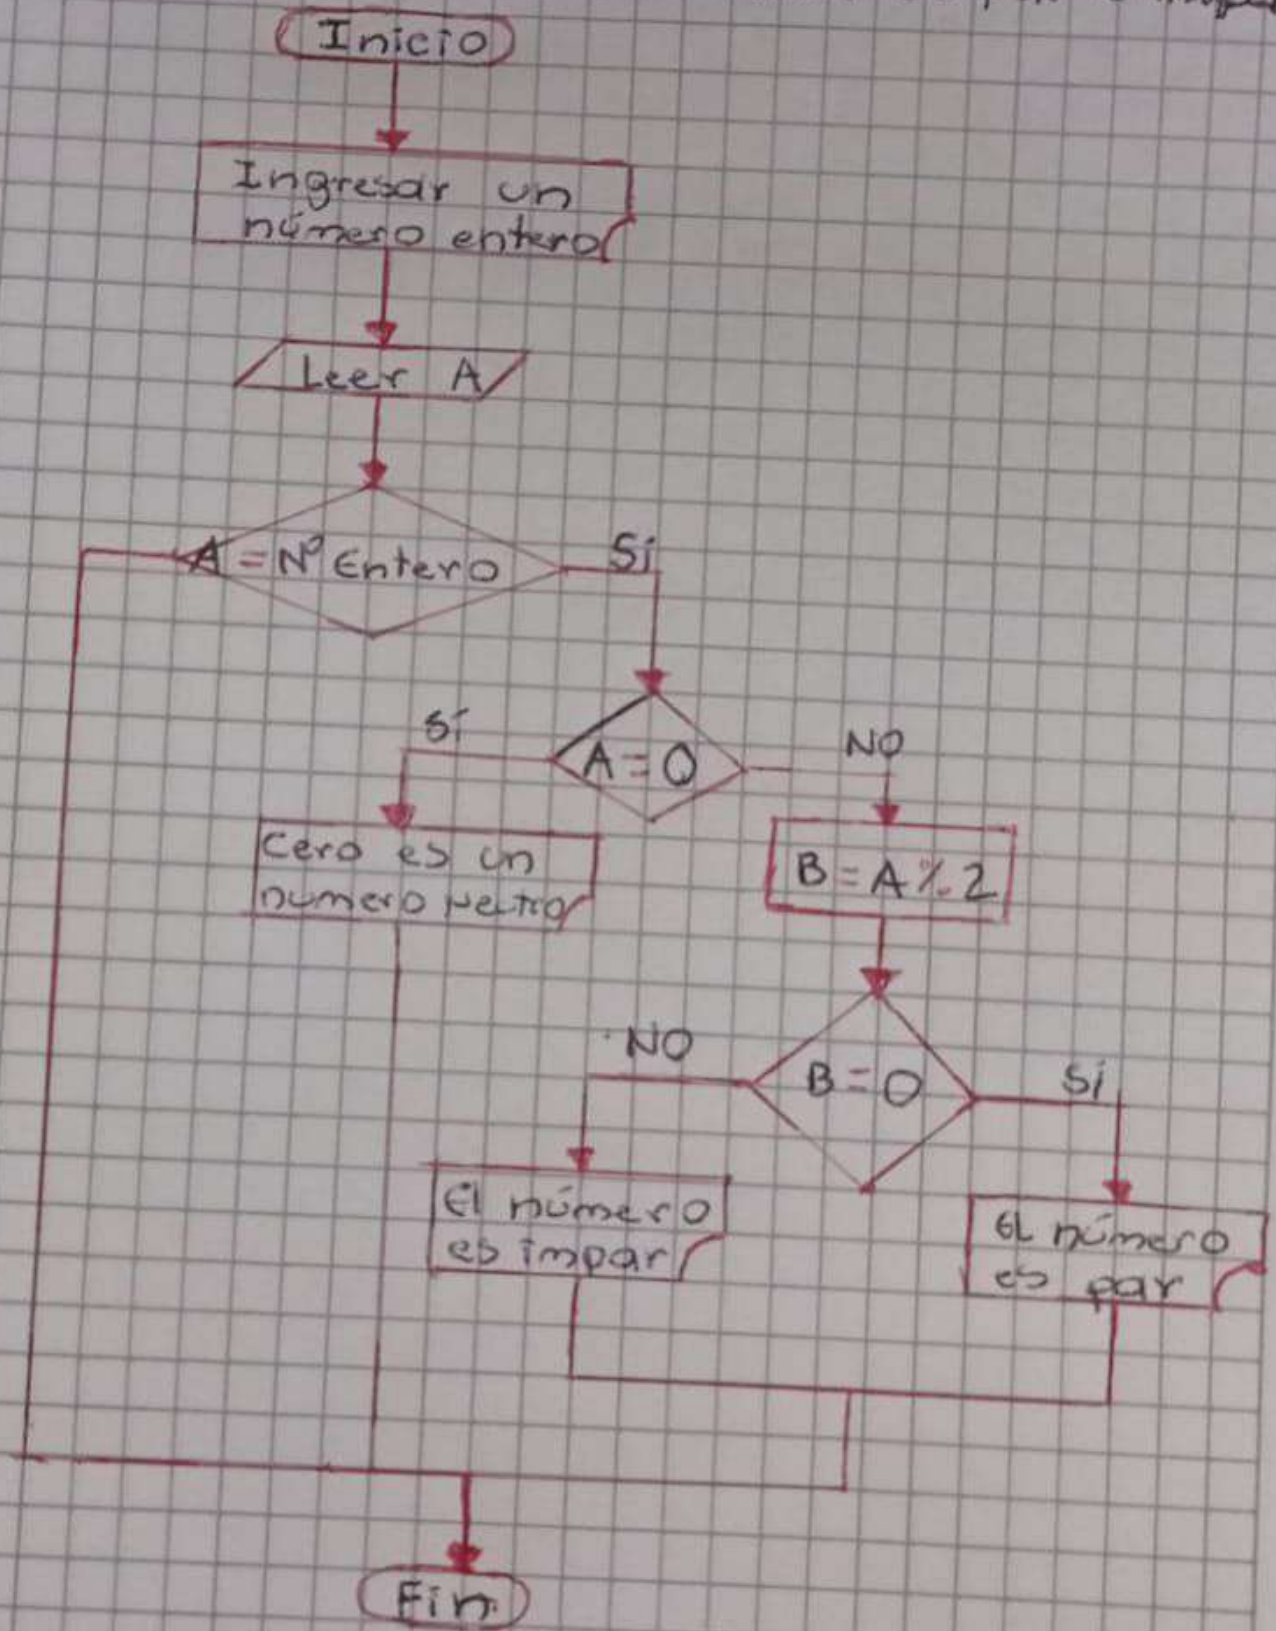 Inicio
Ingresar un
número entero
Leer A
A = Nº Entero
Sí
A = 0
Sí
NO
Cero es un
numero
B = A % 2
B = 0
NO
Sí
El número
es impar
EL número
es par
Fin